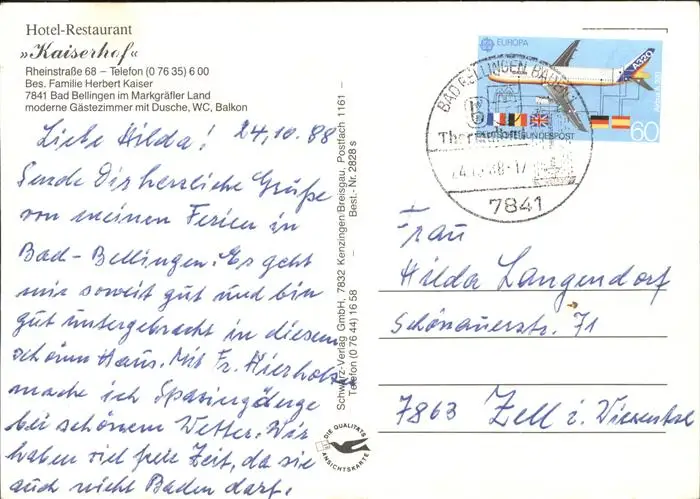 Hotel-Restaurant
»Kaiserhof«
Rheinstraße 68 – Telefon (0 76 35) 6 00
Bes. Familie Herbert Kaiser
7841 Bad Bellingen im Markgräfler Land
moderne Gästezimmer mit Dusche, WC, Balkon
Liebe Hilda! 24.10.88
Sende Dir herrliche Grüße
von meinen Ferien in
Bad-Bellingen. Es geht
mir soweit gut und bin
gut untergebracht in diesem
schönen Haus. Mit Fr. Hierholz
mache ich Spaziergänge
bei schönem Wetter. Wir
haben viel freie Zeit, da sie
auch nicht Baden darf.
Schwarz-Verlag GmbH, 7832 Kenzingen/Breisgau, Postfach 1161 –
Telefon (0 76 44) 16 58 – Best.-Nr. 2828 s
DIE QUALITÄTS
ANSICHTSKARTE
EUROPA
A320
DEUTSCHE BUNDESPOST
60
BAD BELLINGEN, BADEN
88-17
7841
Frau
Hilda Langendorf
Schönauerstr. 71
7863 Zell i. Wiesental